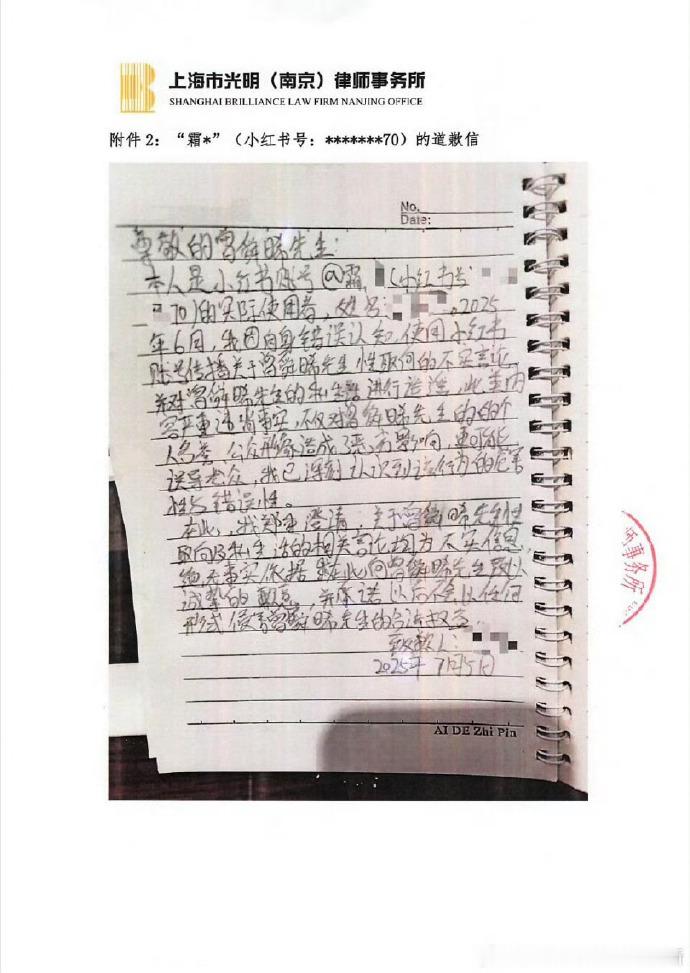 上海市光明（南京）律师事务所
SHANGHAI BRILLIANCE LAW FIRM NANJING OFFICE
附件2：“霜*”（小红书号：*******70）的道歉信
No.
Date:
尊敬的曾舜晞先生：
本人是小红书账号@霜 （小红书号
70）的实际使用者，姓名： 。2025
年6月，我因自身错误认知，使用小红书
账号传播关于曾舜晞先生性取向的不实言论，
并对曾舜晞先生的私生活进行造谣，此类内
容严重违背事实，不仅对曾舜晞先生的个
人名誉、公众形象造成了恶劣影响，更可能
误导公众，我已深刻认识到该行为的危害
性与错误性。
在此，我郑重澄清，关于曾舜晞先生性
取向及私生活的相关言论均为不实信息，
绝无事实依据。在此向曾舜晞先生致以
诚挚的歉意，并承诺以后不会以任何
形式侵害曾舜晞先生的合法权益。
致歉人：
2025年7月5日
AI DE Zhi Pin
事务所